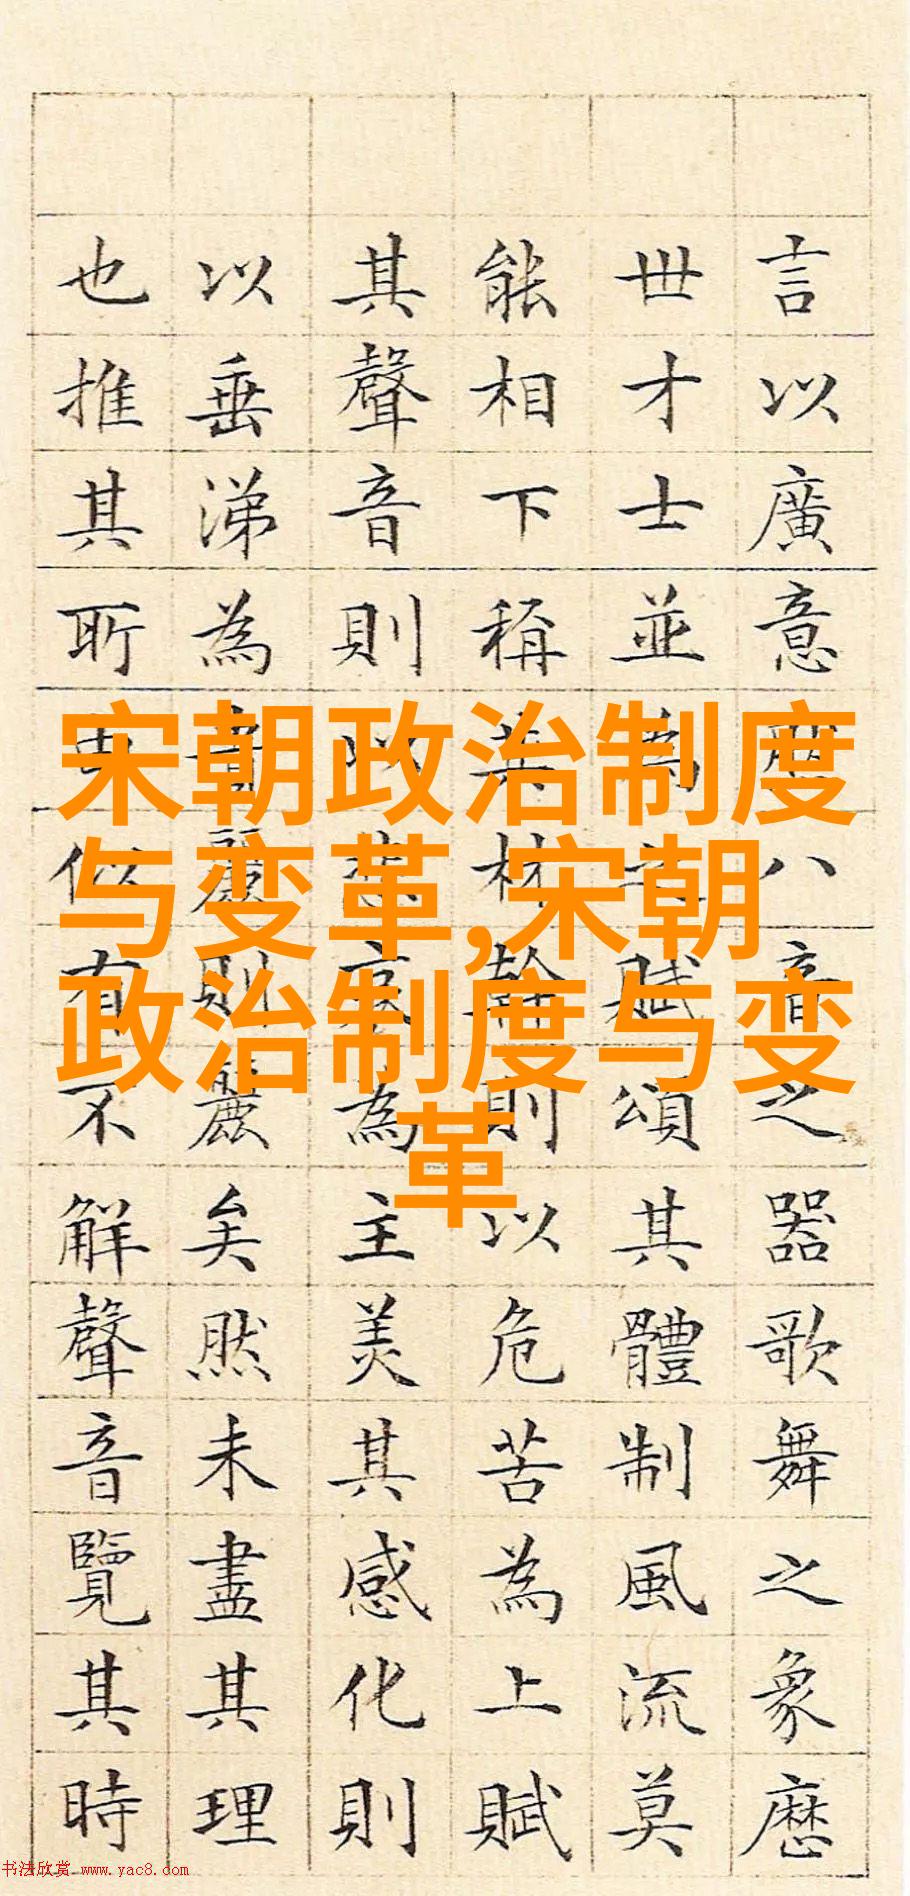 言以廣意然八音之器歌舞之象歷
世才士並為之賦頌其體制風流莫
能相下稱其材幹則以危苦為上賦
其聲音則以悲哀為主美其感化則
以垂涕為貴麗則麗矣然未盡其理
也推其所由似有不解聲音覽其時
宋朝政治制度
与变革,宋朝
政治制度与变
革
书法欣赏 www.yac8.com